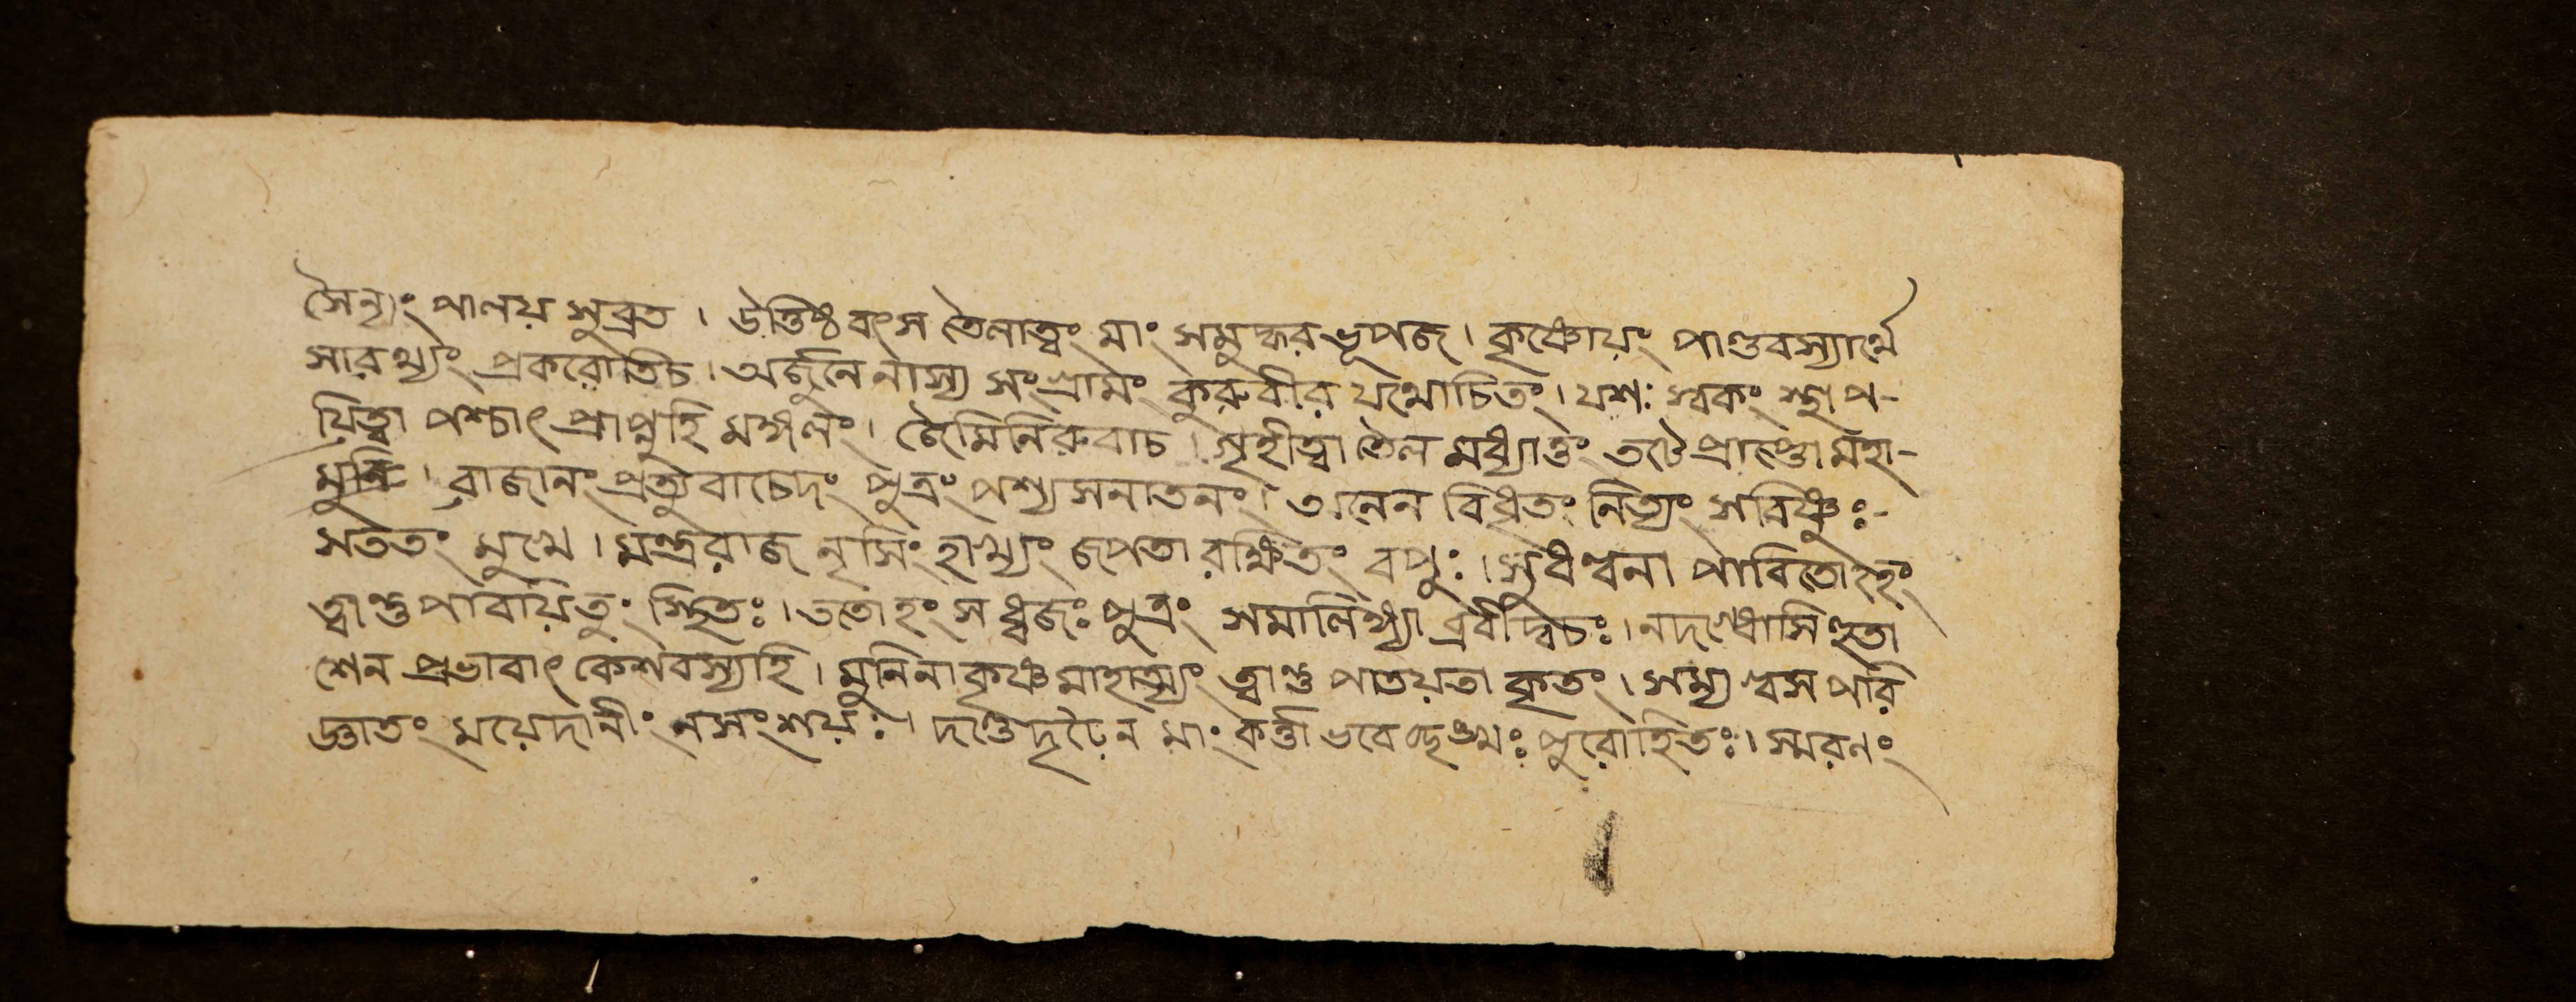 সৈন্যং পালয় সুব্রত । উত্তিষ্ঠ বৎস তৈলাত্ত্বং মাং সমুদ্ধর ভূপজ । কৃষ্ণোয়ং পাণ্ডবস্যার্থে
সারথ্যং প্রকরোতিচ । অর্জুনেনাস্য সংগ্রামং কুরুবীর যথোচিতং । যশঃ স্বকং স্থাপ-
য়িত্বা পশ্চাৎ প্রাপ্নুহি মঙ্গলং । জৈমিনিরুবাচ । গৃহীত্বা তৈল মধ্যাত্তং তটে প্রাপ্তো মহা-
মুনি । রাজানং প্রত্যুবাচেদং পুত্রং পশ্য সনাতনং । অনেন বিধৃতং নিত্যং সবিষ্ণুঃ-
সততং মুখে । মন্ত্ররাজ নৃসিংহাখ্যং জপতা রক্ষিতং বপুঃ । সুধন্বনা পাবিতোহং
ত্বাণ্ড পাবয়িতুং স্থিতঃ । ততো হংসধ্বজঃ পুত্রং সমালিঙ্গ্যা ব্রবীদ্বচঃ । নদগ্ধোসি হুতা
শেন প্রভাবাৎ কেশবস্যহি । মুনিনা কৃষ্ণ মাহাত্ম্যং ত্বাণ্ড পাতয়তা কৃতং । সম্য পরি
জ্ঞাতং ময়েদানীং নসংশয়ঃ । মাং কর্ত্তা পুরোহিতঃ । স্মরণং